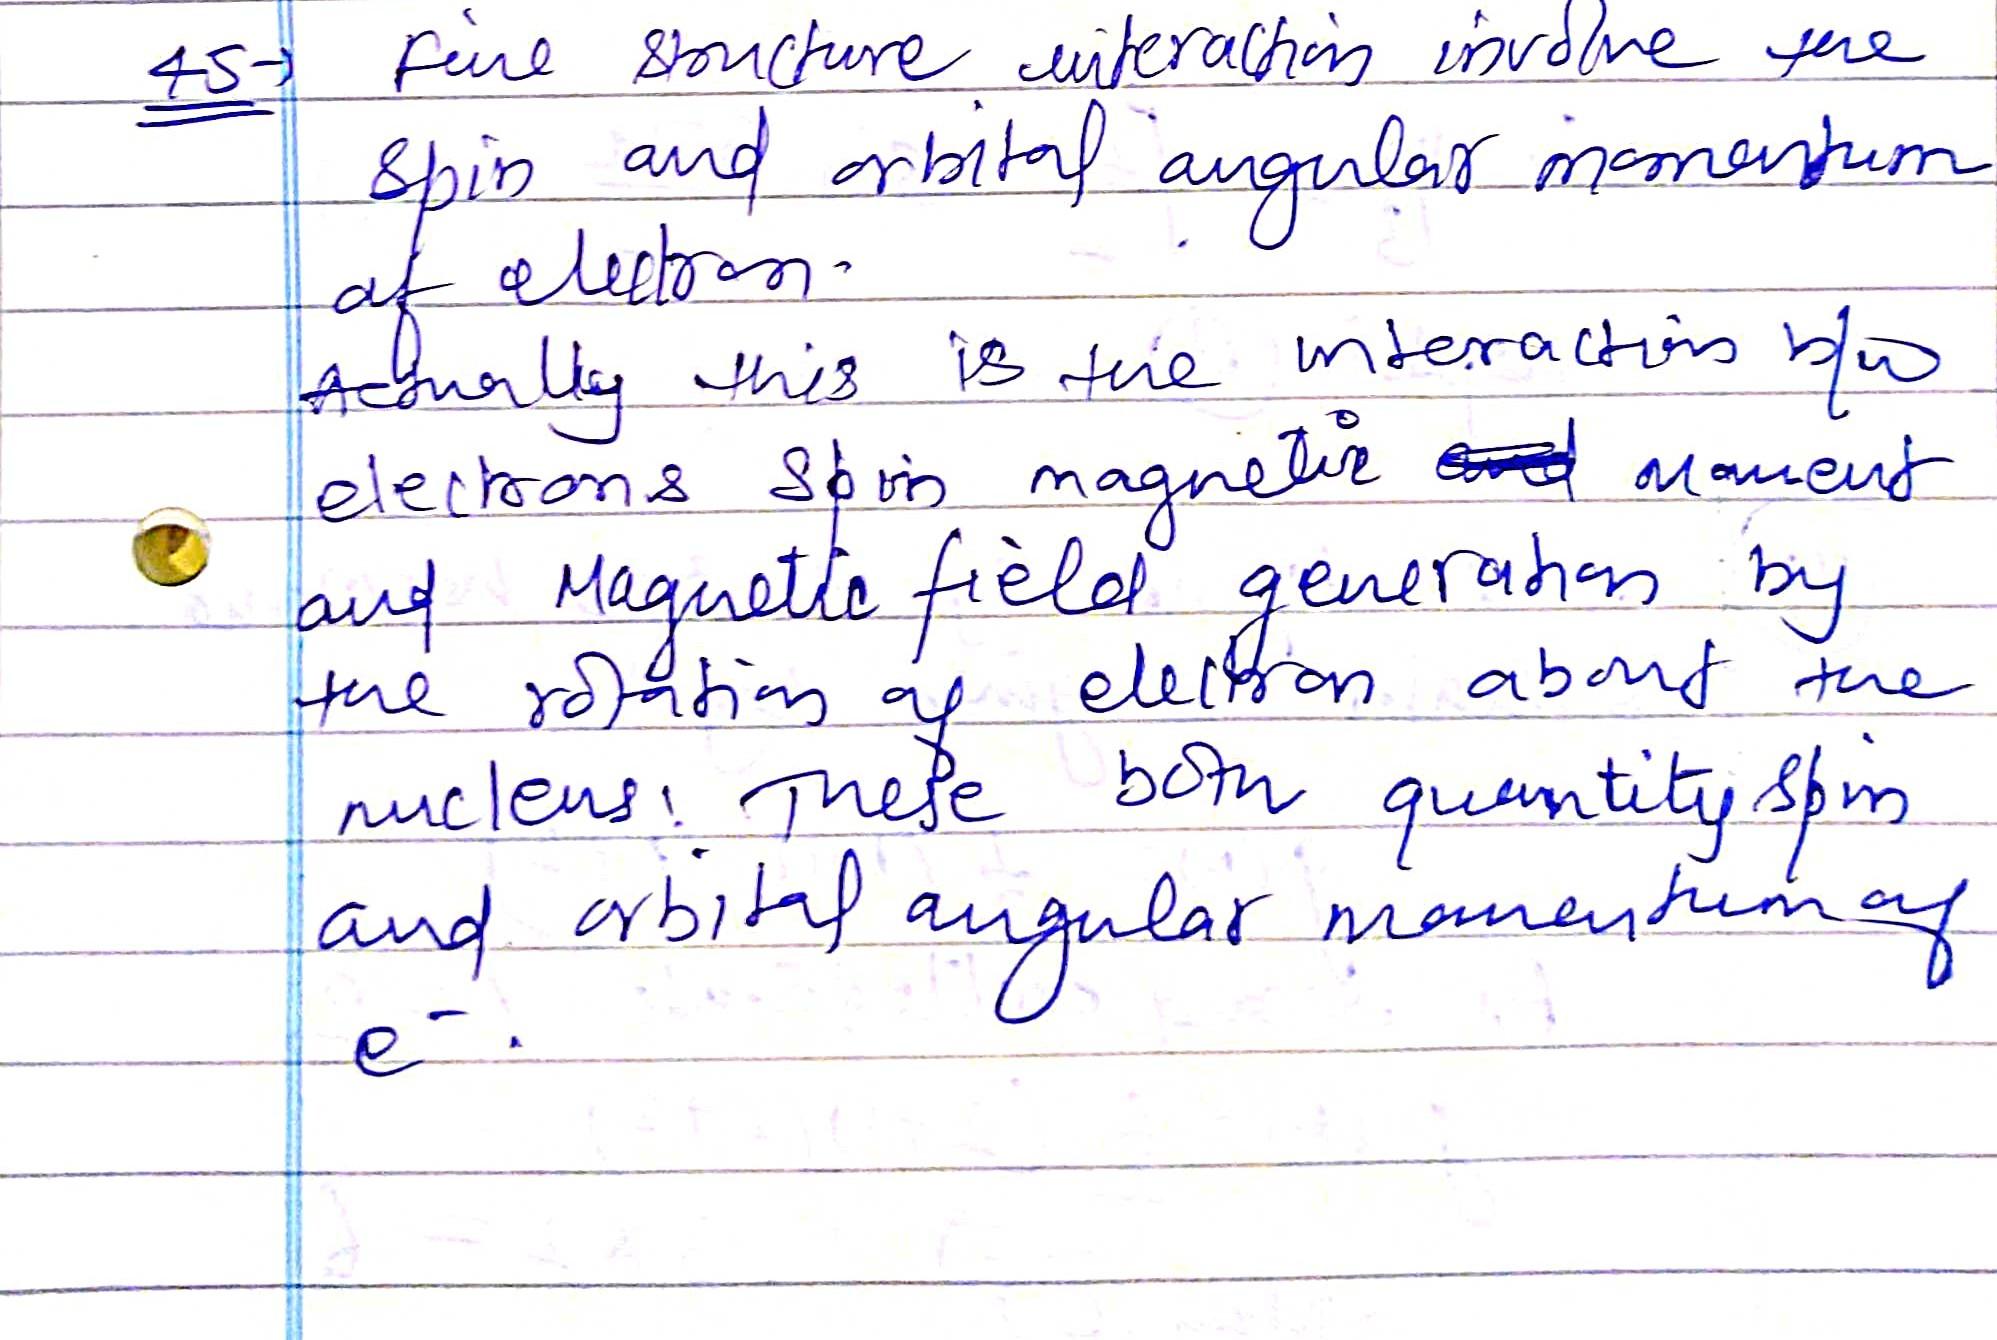 45→ Fine structure interaction involve the
spin and orbital angular momentum
of electron.
Actually this is the interaction b/w
electrons spin magnetic and moment
and Magnetic field generation by
the rotation of electron about the
nucleus. These both quantity spin
and orbital angular momentum of
e⁻.